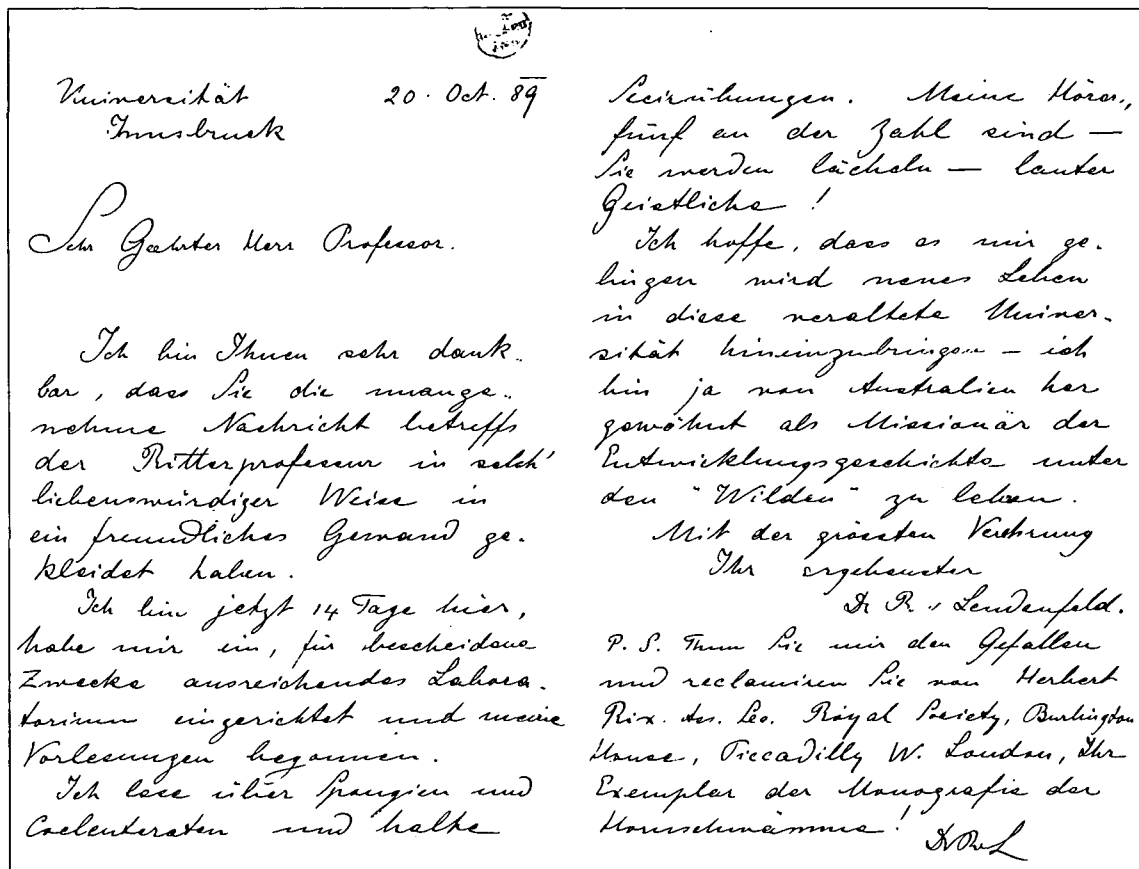 Universität 20. Oct. 89
Innsbruck
Sehr Geehrter Herr Professor.
Ich bin Ihnen sehr dank-
bar, dass Sie die unange-
nehme Nachricht betreffs
der Ritterprofessur in solch'
liebenswürdiger Weise in
ein freundliches Gewand ge-
kleidet haben.
Ich bin jetzt 14 Tage hier,
habe mir ein, für bescheidene
Zwecke ausreichendes Labora-
torium eingerichtet und meine
Vorlesungen begonnen.
Ich lese über Spongien und
Coelenteraten und halte
Secirübungen. Meine Hörer,
fünf an der Zahl sind —
Sie werden lächeln — lauter
Geistliche!
Ich hoffe, dass es mir ge-
lingen wird neues Leben
in diese veraltete Univer-
sität hineinzubringen — ich
bin ja von Australien her
gewöhnt als Missionär der
Entwicklungsgeschichte unter
den "Wilden" zu leben.
Mit der grössten Verehrung
Ihr ergebenster
Dr R. v Lendenfeld.
P. S. Thun Sie mir den Gefallen
und reclamiren Sie von Herbert
Rix. Ass. Sec. Royal Society, Burlington
House, Piccadilly W. London, Ihr
Exemplar der Monografie der
Hornschwämme!
DRvL